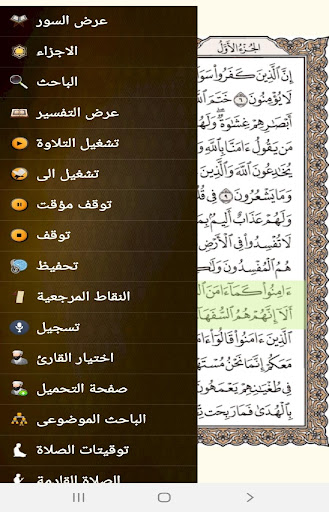 الجُزْءُ الأَوَّلُ
إِنَّ ٱلَّذِينَ كَفَرُواْ سَوَآ
لَا يُؤْمِنُونَ ٦ خَتَمَ
أَبْصَٰرِهِمْ غِشَٰوَةٌ وَلَهُمْ
مَن يَقُولُ ءَامَنَّا بِٱللَّهِ وَ
يُخَٰدِعُونَ ٱللَّهَ وَٱلَّذِينَ
وَمَا يَشْعُرُونَ ٩ فِي قُلُ
وَلَهُمْ عَذَابٌ أَلِيمٌ بِمَا
لَا تُفْسِدُواْ فِي ٱلْأَرْضِ
هُمُ ٱلْمُفْسِدُونَ وَلَٰكِ
ءَامِنُواْ كَمَآ ءَامَنَ ٱل
أَلَآ إِنَّهُمْ هُمُ ٱلسُّفَهَآ
ٱلَّذِينَ ءَامَنُواْ قَالُوٓاْ ءَامَ
مَعَكُمْ إِنَّمَا نَحْنُ مُسْتَهْ
فِي طُغْيَٰنِهِمْ يَعْمَهُونَ
بِٱلْهُدَىٰ فَمَا رَبِحَت
عرض السور
الاجزاء
الباحث
عرض التفسير
تشغيل التلاوة
تشغيل الى
توقف مؤقت
توقف
تحفيظ
النقاط المرجعية
تسجيل
اختيار القارئ
صفحة التحميل
الباحث الموضوعى
توقيتات الصلاة
الصلاة القادمة